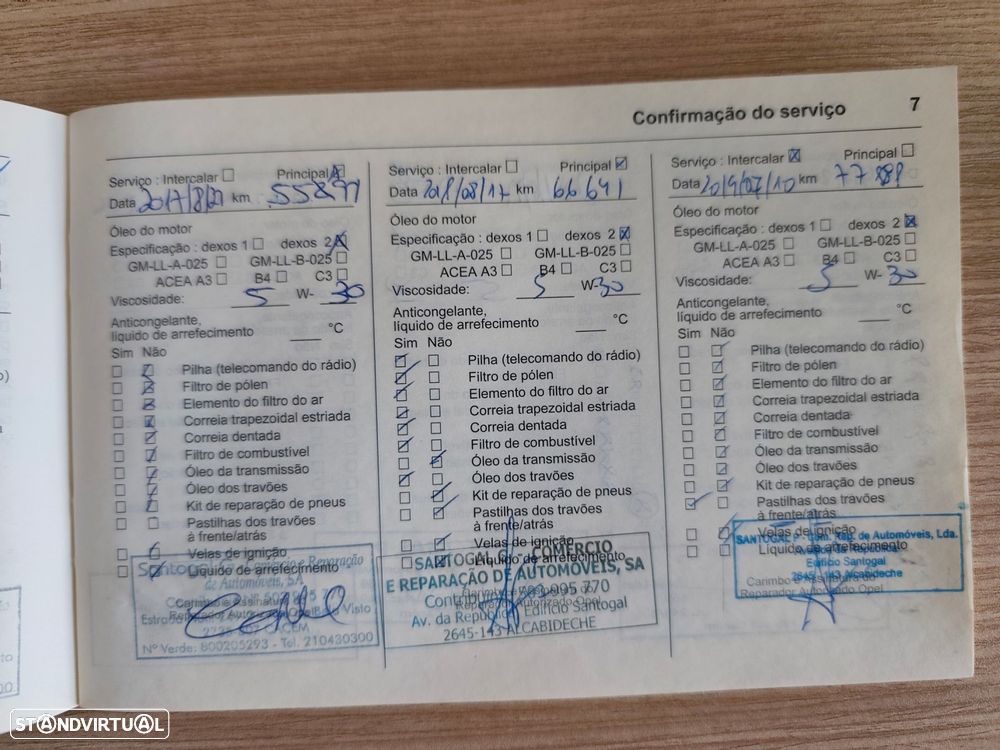 Confirmação do serviço 7
Serviço : Intercalar Principal
Data 2017/8/ km 55
Óleo do motor
Especificação : dexos 1 dexos 2
GM-LL-A-025 GM-LL-B-025
ACEA A3 B4 C3
Viscosidade: 5 W- 30
Anticongelante,
líquido de arrefecimento °C
Sim Não
Pilha (telecomando do rádio)
Filtro de pólen
Elemento do filtro do ar
Correia trapezoidal estriada
Correia dentada
Filtro de combustível
Óleo da transmissão
Óleo dos travões
Kit de reparação de pneus
Pastilhas dos travões
à frente/atrás
Velas de ignição
Líquido de arrefecimento
de Automóveis, SA
Carimbo e Assinatura
Nº Verde: 800205293 - Tel. 210430300
Serviço : Intercalar Principal
Data 2018/08/17 km 66641
Óleo do motor
Especificação : dexos 1 dexos 2
GM-LL-A-025 GM-LL-B-025
ACEA A3 B4 C3
Viscosidade: 5 W- 30
Anticongelante,
líquido de arrefecimento °C
Sim Não
Pilha (telecomando do rádio)
Filtro de pólen
Elemento do filtro do ar
Correia trapezoidal estriada
Correia dentada
Filtro de combustível
Óleo da transmissão
Óleo dos travões
Kit de reparação de pneus
Pastilhas dos travões
à frente/atrás
Velas de ignição
Líquido de arrefecimento
COMÉRCIO
E REPARAÇÃO DE AUTOMÓVEIS, SA
Reparador Autorizado Opel
Av. da República, Edifício Santogal
2645-143 ALCABIDECHE
Serviço : Intercalar Principal
Data 2019/07/10 km 77
Óleo do motor
Especificação : dexos 1 dexos 2
GM-LL-A-025 GM-LL-B-025
ACEA A3 B4 C3
Viscosidade: 5 W- 30
Anticongelante,
líquido de arrefecimento °C
Sim Não
Pilha (telecomando do rádio)
Filtro de pólen
Elemento do filtro do ar
Correia trapezoidal estriada
Correia dentada
Filtro de combustível
Óleo da transmissão
Óleo dos travões
Kit de reparação de pneus
Pastilhas dos travões
à frente/atrás
Velas de ignição
SANTOGAL P - Com. Rep. de Automóveis, Lda.
Líquido de arrefecimento
Edifício Santogal
2645-143 Alcabideche
Reparador Autorizado Opel
STANDVIRTUAL